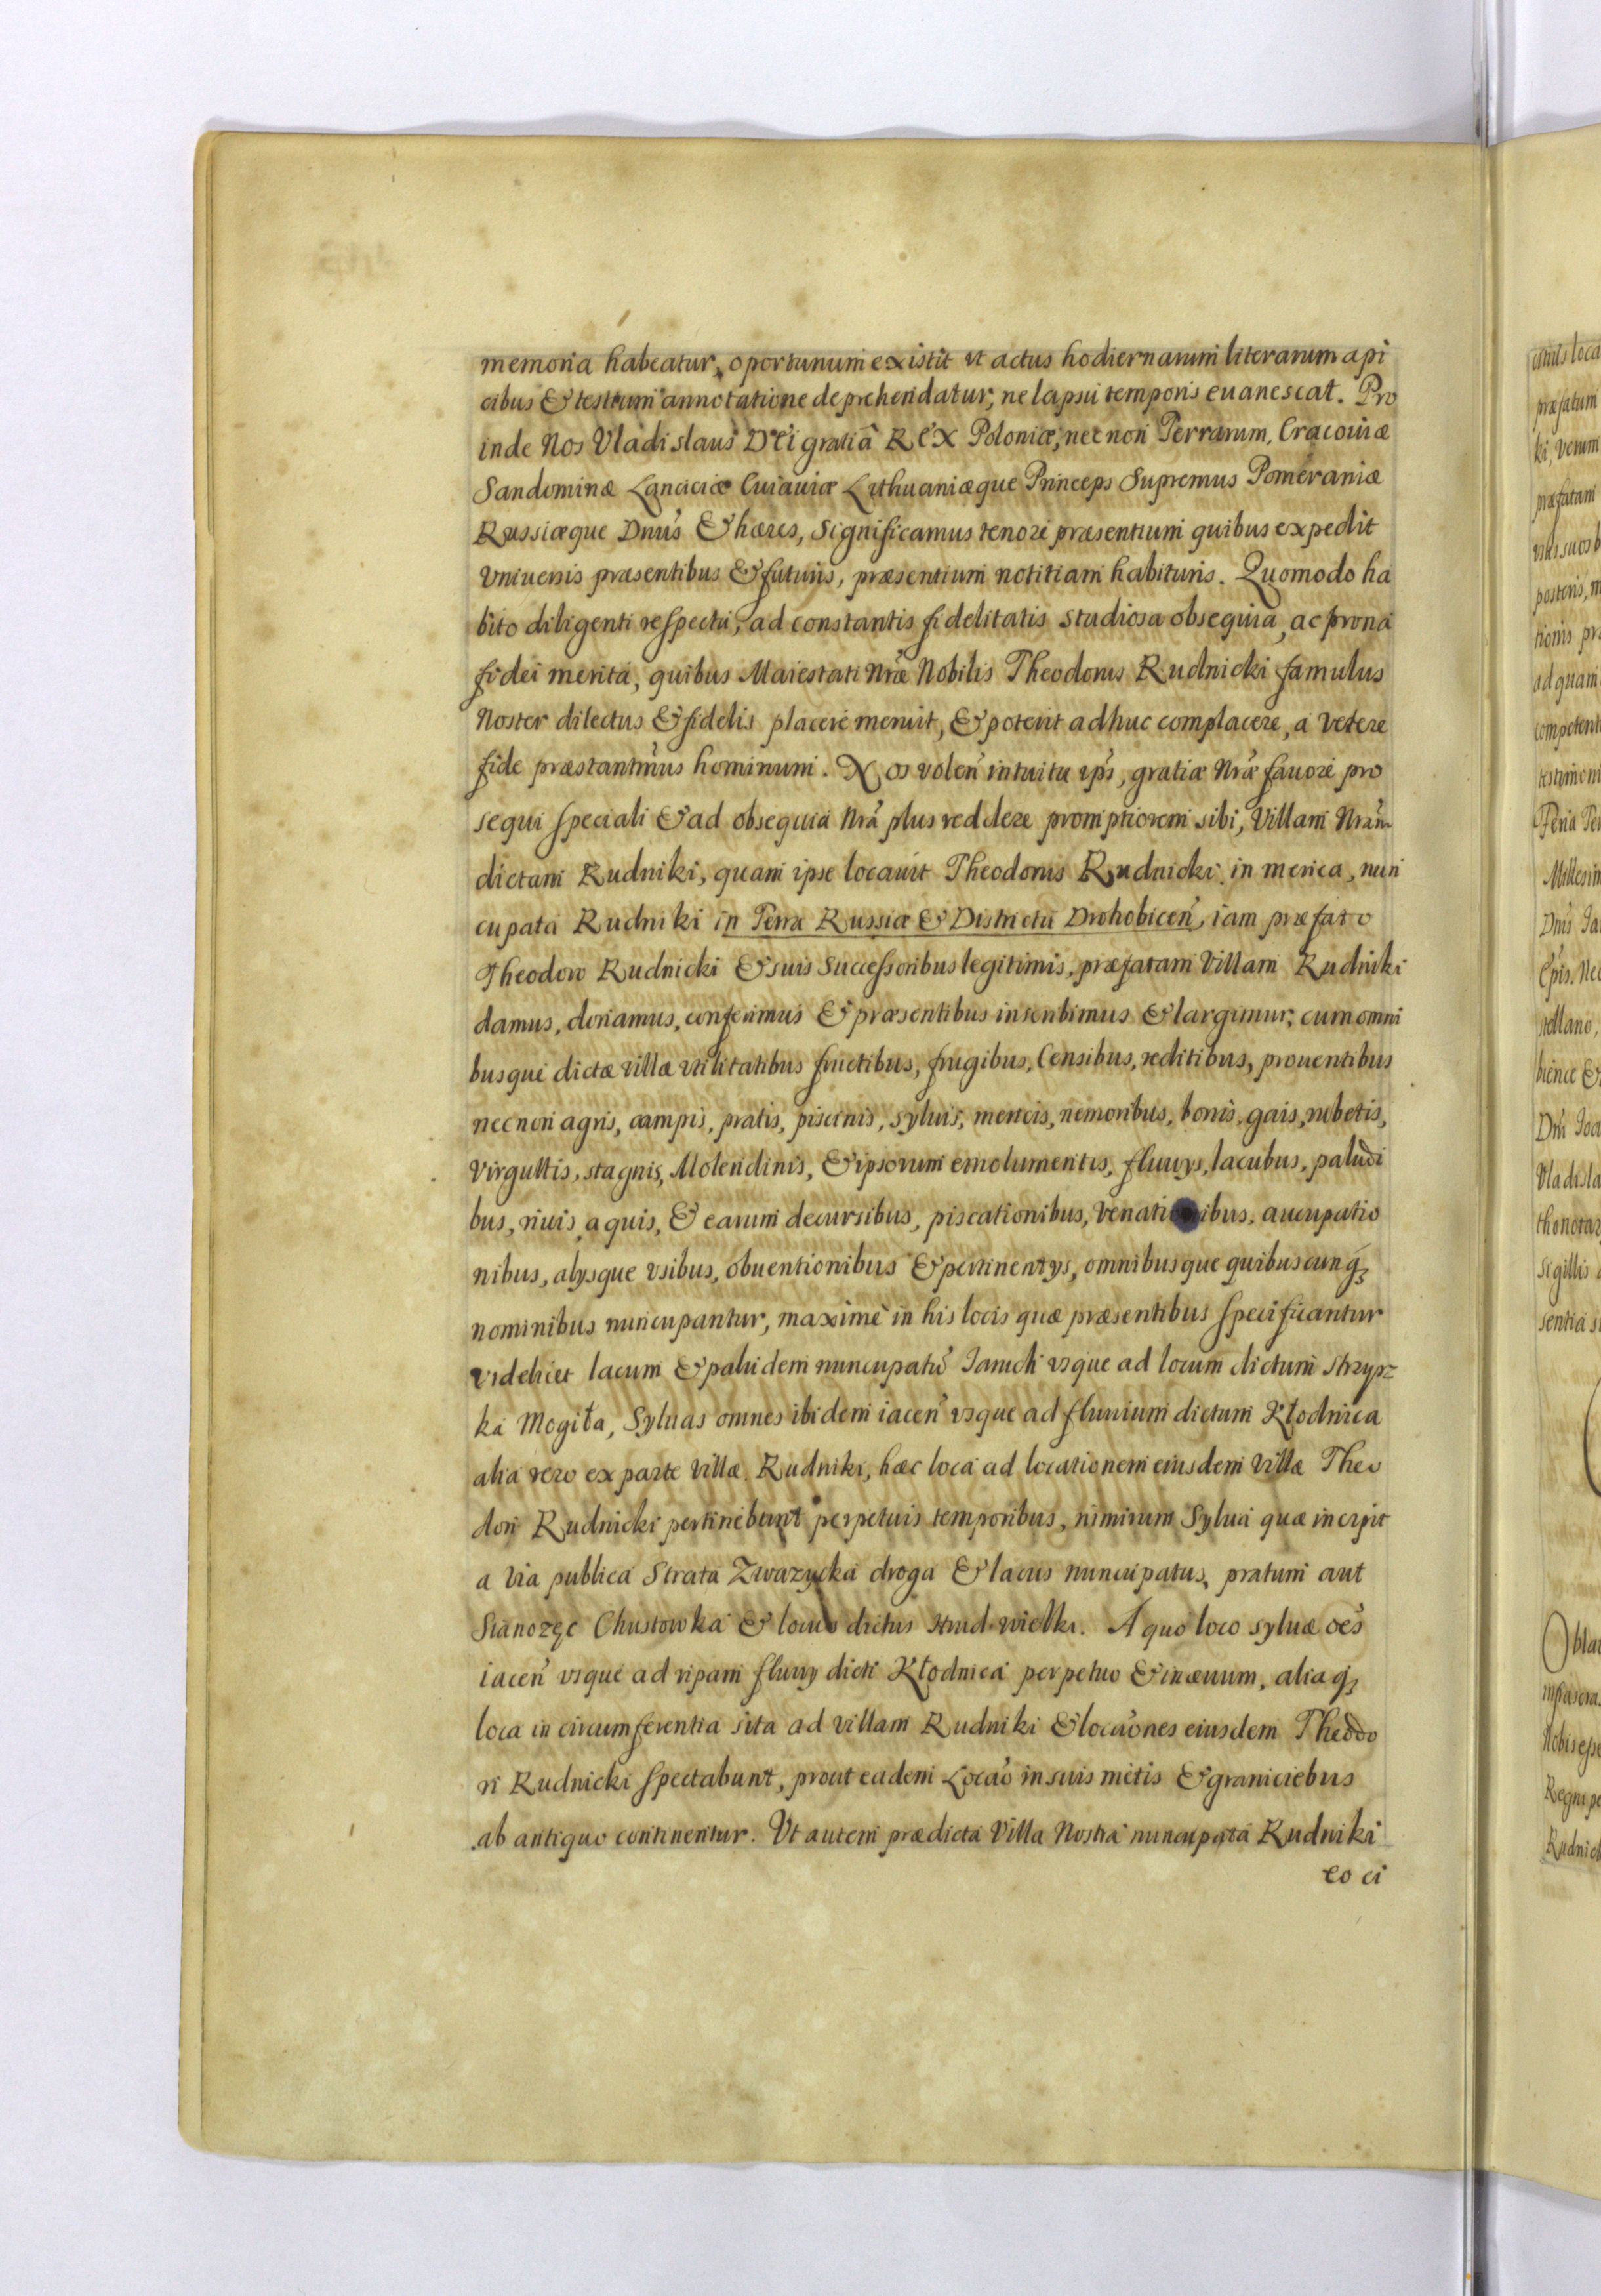 memoria habeatur, oportunum existit vt actus hodiernarum literarum api
cibus & testium annotatione deprehendatur, ne lapsu temporis euanescat. Pro
inde Nos Vladislaus Dei gratiâ Rex Poloniæ, nec non Terrarum, Cracouiæ
Sandominæ Lanciciæ Cuiauiæ Lithuaniæque Princeps Supremus Pomeraniæ
Russiæque Dnus & hæres, Significamus tenore præsentium quibus expedit
Vniuersis præsentibus & futuris, præsentium notitiam habituris. Quomodo ha
bito diligenti respectu, ad constantis fidelitatis studiosa obsequia, ac prona
fidei merita, quibus Maiestati Nræ Nobilis Theodorus Rudnicki famulus
Noster dilectus & fidelis placere meruit, & poterit adhuc complacere, a vetere
fide præstantmus hominum. Nos volen intuitu ips, gratiæ Nræ fauore pro
sequi speciali & ad obsequia Nra plus reddere promptiorem sibi, Villam Nram
dictam Rudniki, quam ipse locauit Theodorus Rudnicki in merica, nun
cupata Rudniki in Terra Russiæ & Districtu Drohobicen, iam præfato
Theodoro Rudnicki & suis successoribus legitimis, præfatam Villam Rudniki
damus, donamus, conferimus & præsentibus inscribimus & largimur, cum omni
busque dictæ villæ vtilitatibus fructibus, frugibus, Censibus, reditibus, prouentibus
nec non agris, campis, pratis, piscinis, syluis, mericis, nemoribus, bonis, gais, rubetis,
Virgultis, stagnis, Molendinis, & ipsorum emolumentis, fluuys, lacubus, paludi
bus, riuis, aquis, & earum decursibus, piscationibus, venationibus, aucupatio
nibus, alysque vsibus, obuentionibus & pertinentys, omnibusque quibuscunq3
nominibus nuncupantur, maximè in his locis quæ præsentibus specificantur
videlicet lacum & paludem nuncupatu vsque ad locum dictum Strzyz
ka Mogiła, Syluas omnes ibidem iacen vsque ad fluuium dictum Kłodnica
alia vero ex parte villæ Rudniki, hæc loca ad locationem eiusdem Villæ Theo
dori Rudnicki pertinebunt perpetuis temporibus, nimirum Sylua quæ incipit
a via publica Strata Zwazycka droga & lacus nuncupatus, pratum aut
Sianozęc Chustowka & locus dictus Hrud wielki. A quo loco syluæ oes
iacen vsque ad ripam fluuy dicti Kłodnica perpetuo & in æuum, aliaq3
loca in circumferentia sita ad villam Rudniki & locaones eiusdem Theodo
ri Rudnicki spectabunt, prout eadem Locao in suis metis & graniciebus
ab antiquo continentur. Vt autem prædicta Villa Nostra nuncupata Rudniki
eo ci